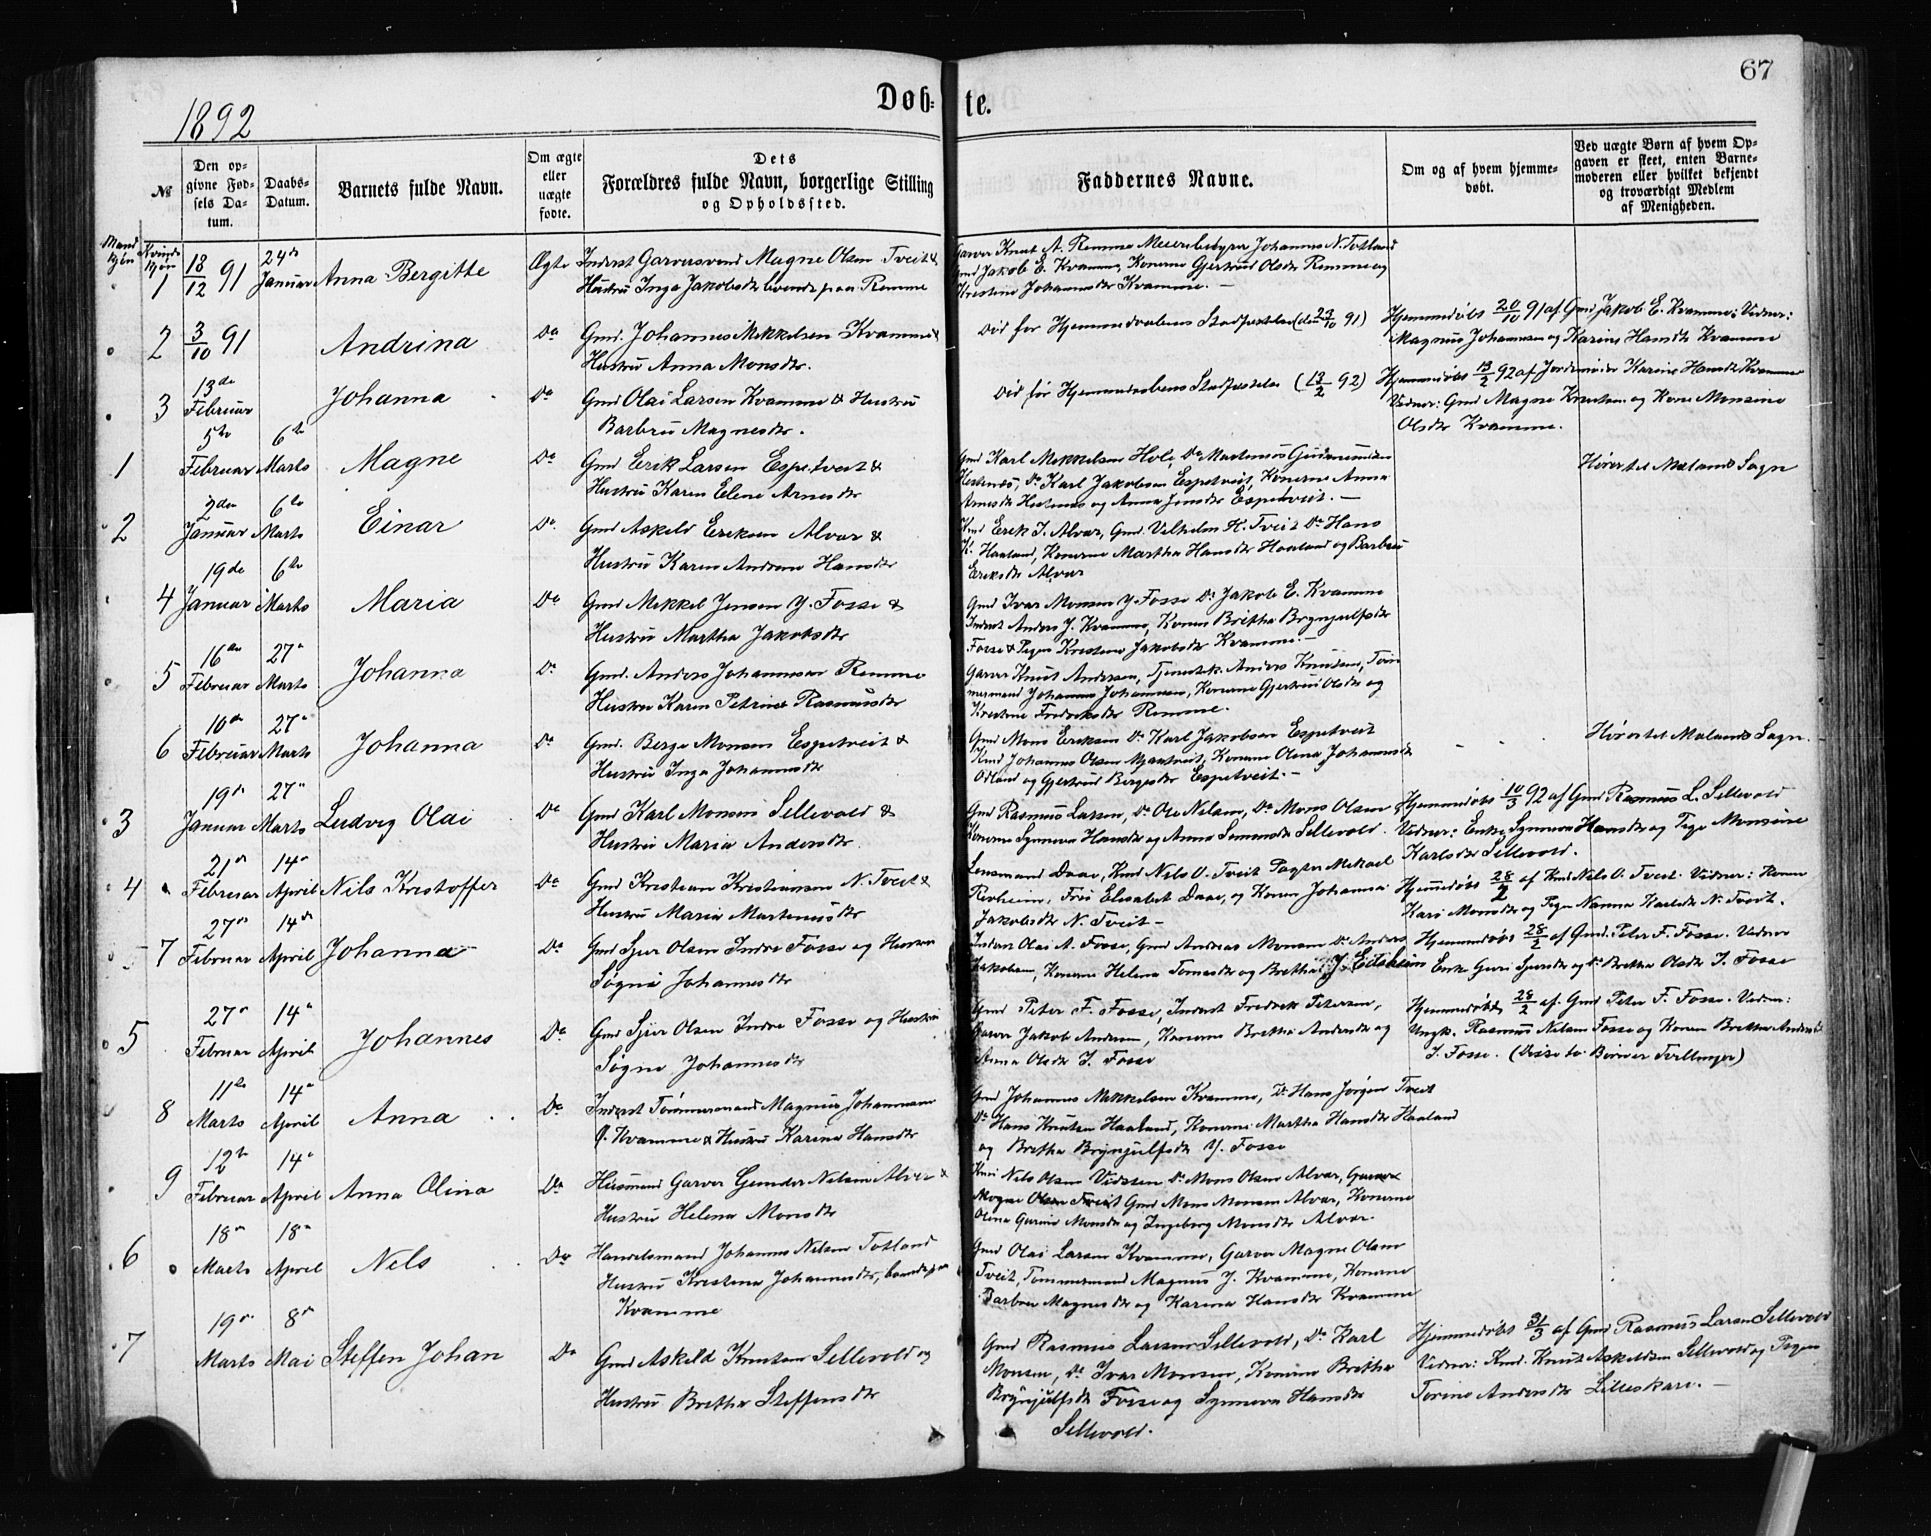 67
1892
Døb- te.
№
Den opgivne Fødsels Datum.
Daabs-Datum.
Barnets fulde Navn.
Om ægte eller uægte fødte.
Dets Forældres fulde Navn, borgerlige Stilling og Opholdssted.
Faddernes Navne.
Om og af hvem hjemmedøbt.
Ved uægte Børn af hvem Opgaven er skeet, enten Barnemoderen eller hvilket bekjendt og troværdigt Medlem af Menigheden.
Mandkjøn Kvindekjøn
1 18/12 91 24de Januar Anna Bergitte Ægte Inderst Garversvend Magne Olsen Tveit &
Hustru Inga Jakobsdtr boende paa Remme
Garver Knut A. Remme Meieribestyrer Johannes N. Totland
Gmd Jakob E. Kvamme, Konerne Gjertrud Olsdtr Remme og
Kristine Johannesdtr Kvamme. —
2 3/10 91 Andrina Do Gmd. Johannes Mikkelsen Kvamme &
Hustru Anna Monsdtr.
Død før Hjemmedaabens Stadfæstelse
Hjemmedøbt 20/10 91 af Gmd Jakob E. Kvamme. Vidner:
Magnus Johannesen og Karine Hansdtr Kvamme
3 13de Februar Johanna Do Gmd Olai Larsen Kvamme & Hustru
Barbru Magnesdtr.
Død før Hjemmedaabens Stadfæstelse (13/2 92)
Hjemmedøbt 13/2 92 af Jordemoder Karine Hansdtr Kvamme
Vidner: Gmd Magne Knutsen og Kone Monsine
Olsdtr Kvamme.
1 5te Februar 6te Marts Magne Do Gmd Erik Larsen Espetveit &
Hustru Karen Eline Arnesdtr
Gmd Karl Mikkelsen Hole, Do Martinus
Do Karl Jakobsen Espetveit, Konerne Anna
Arnesdtr og Anna Jensdtr Espetveit. —
Hører til Mælands Sogn
2 2den Januar 6te Marts Einar Do. Gmd Askeld Eriksen Alver &
Hustru Karen Andrea Hansdtr
Erik I. Alver, Gmd. Vilhelm H. Tveit Do Hans
K. Haaland, Konerne Martha Hansdtr Haaland og Barbru
Eriksdtr Alver
4 19de Januar 6te Marts Maria Do Gmd Mikkel Jensen Y. Fosse &
Hustru Martha Jakobsdtr
Gmd Ivar Monsen Y. Fosse Do Jakob E. Kvamme
Inderst Anders J. Kvamme, Konen Britha Brynjulfsdtr
Fosse & Pigen Kristine Jakobsdtr Kvamme. —
5 16de Februar 27de Marts Johanna Do Gmd. Anders Johannesen Remme
Hustru Karen Petrine Rasmusdtr
Garver Knut Andersen, Tjenestek. Anders Knudsen, Tømmermand
Johannes Johannesen, Konerne Gjertrud Olsdtr og
Kristine Fredriksdtr Remme.
6 10de Februar 27de Marts Johanna Do Gmd. Berge Monsen Espetveit &
Hustru Inga Johannesdtr
Gmd Mons Eriksen Do Karl Jakobsen Espetveit
Johannes Olsen, Konerne Olina Johannesdtr
Odland og Gjertrud Bergesdtr Espetveit. —
Hører til Mælands Sogn.
3 19de Januar 27de Marts Ludvig Olai Do Gmd Karl Monsen Sellevold &
Hustru Maria Andersdtr.
Gmd Rasmus Larsen, Do Ole Nilsen, Do Mons Olsen
Konerne Synneva Hansdtr og Anna Sellevold.
Hjemmedøbt 10/3 92 af Gmd Rasmus L. Sellevold
Vidner: Enke Synneva Hansdtr og Pige Monsine
Karlsdtr Sellevold.
4 21de Februar 14de April Nils Kristoffer Do Gmd Kristian Kristiansen N. Tveit &
Hustru Maria Martinusdtr
Lensmand Daae, Nils O. Tveit Pagter Mikael
Fru Elisabet Daae, og Konen Johanna
Jakobsdtr N. Tveit —
Hjemmedøbt 28/2 af Nils O. Tveit. Vidner: Konen
Kari Monsdtr og Pige Nanna Karlsdtr N. Tveit.
7 27de Februar 14de April Johanna Do Gmd Sjur Olsen Indre Fosse og Hustru
Søgna Johannesdtr
Inderst Olai A. Fosse, Gmd Andreas Monsen Do Anders
Jakobsen, Konerne Helena Tomasdtr og Bretha
Hjemmedøbt 28/2 af Gmd. Peter F. Fosse. Vidner
Enke Guri Sjursdtr og Do Bretha Olsdtr I. Fosse
5 27de Februar 14de April Johannes Do Gmd Sjur Olsen Indre Fosse og Hustru
Søgna Johannesdtr
Gmd Peter F. Fosse, Inderst Fredrik Petersen,
Garver Jakob Andersen, Konerne Bretha Andersdtr og
Anna Olsdtr I. Fosse
Hjemmedøbt 28/2 af Gmd Peter F. Fosse. Vidner:
Ungk. Rasmus Nilsen Fosse og Konen Bretha Andersdtr
I. Fosse. (Disse to Børn er Tvillinger)
8 11te Marts 14de April Anna Do Inderst Tømmermand Magnus Johannesen
Kvamme & Hustru Karina Hansdtr
Gmd Johannes Mikkelsen Kvamme, Do Hans Jørgen Tveit
Do Hans Knutsen Haaland, Konerne Martha Hansdtr Haaland
og Bretha Brynjulfsdtr Y. Fosse
9 12te Februar 14de April Anna Olina Do Husmand Garver Gunder Nilsen Alver &
Hustru Helena Monsdtr
Nils Olsen Vidsten Do Mons Olsen Alver, Garver
Magne Olsen Tveit Gmd Mons Monsen Alver, Konerne
Olina Gurine Monsdtr og Ingeborg Monsdtr Alver.
6 18de Marts 18de April Nels Do Handelsmand Johannes Nilsen Totland
Hustru Kristina Johannesdtr, boende paa
Kvamme
Gmd Olai Larsen Kvamme, Garver Magne Olsen
Tveit, Tømmermand Magnus J. Kvamme, Konerne
Barbru Magnesdtr og Karina Hansdtr Kvamme
7 19de Marts 8de Mai Steffen Johan Do Gmd Askeld Knutsen Sellevold og
Hustru Bretha Steffensdtr
Gmd Rasmus Larsen Sellevold, Do Karl
Monsen, Do Ivar Monsen, Konerne Britha
Brynjulfsdtr Fosse og Synneva Hansdtr
Sellevold.
Hjemmedøbt 31/3 af Gmd Rasmus Larsen Sellevold
Vidner: Knut Askeldsen Sellevold og Pigen
Torine Andersdtr Lilleskare. —